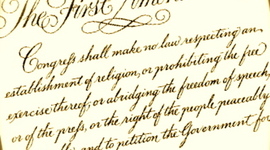 The First Amen
Congress shall make no law respecting an
establishment of religion, or prohibiting the free
exercise thereof; or abridging the freedom of speech,
or of the press, or the right of the people peaceably
and to petition the Government for